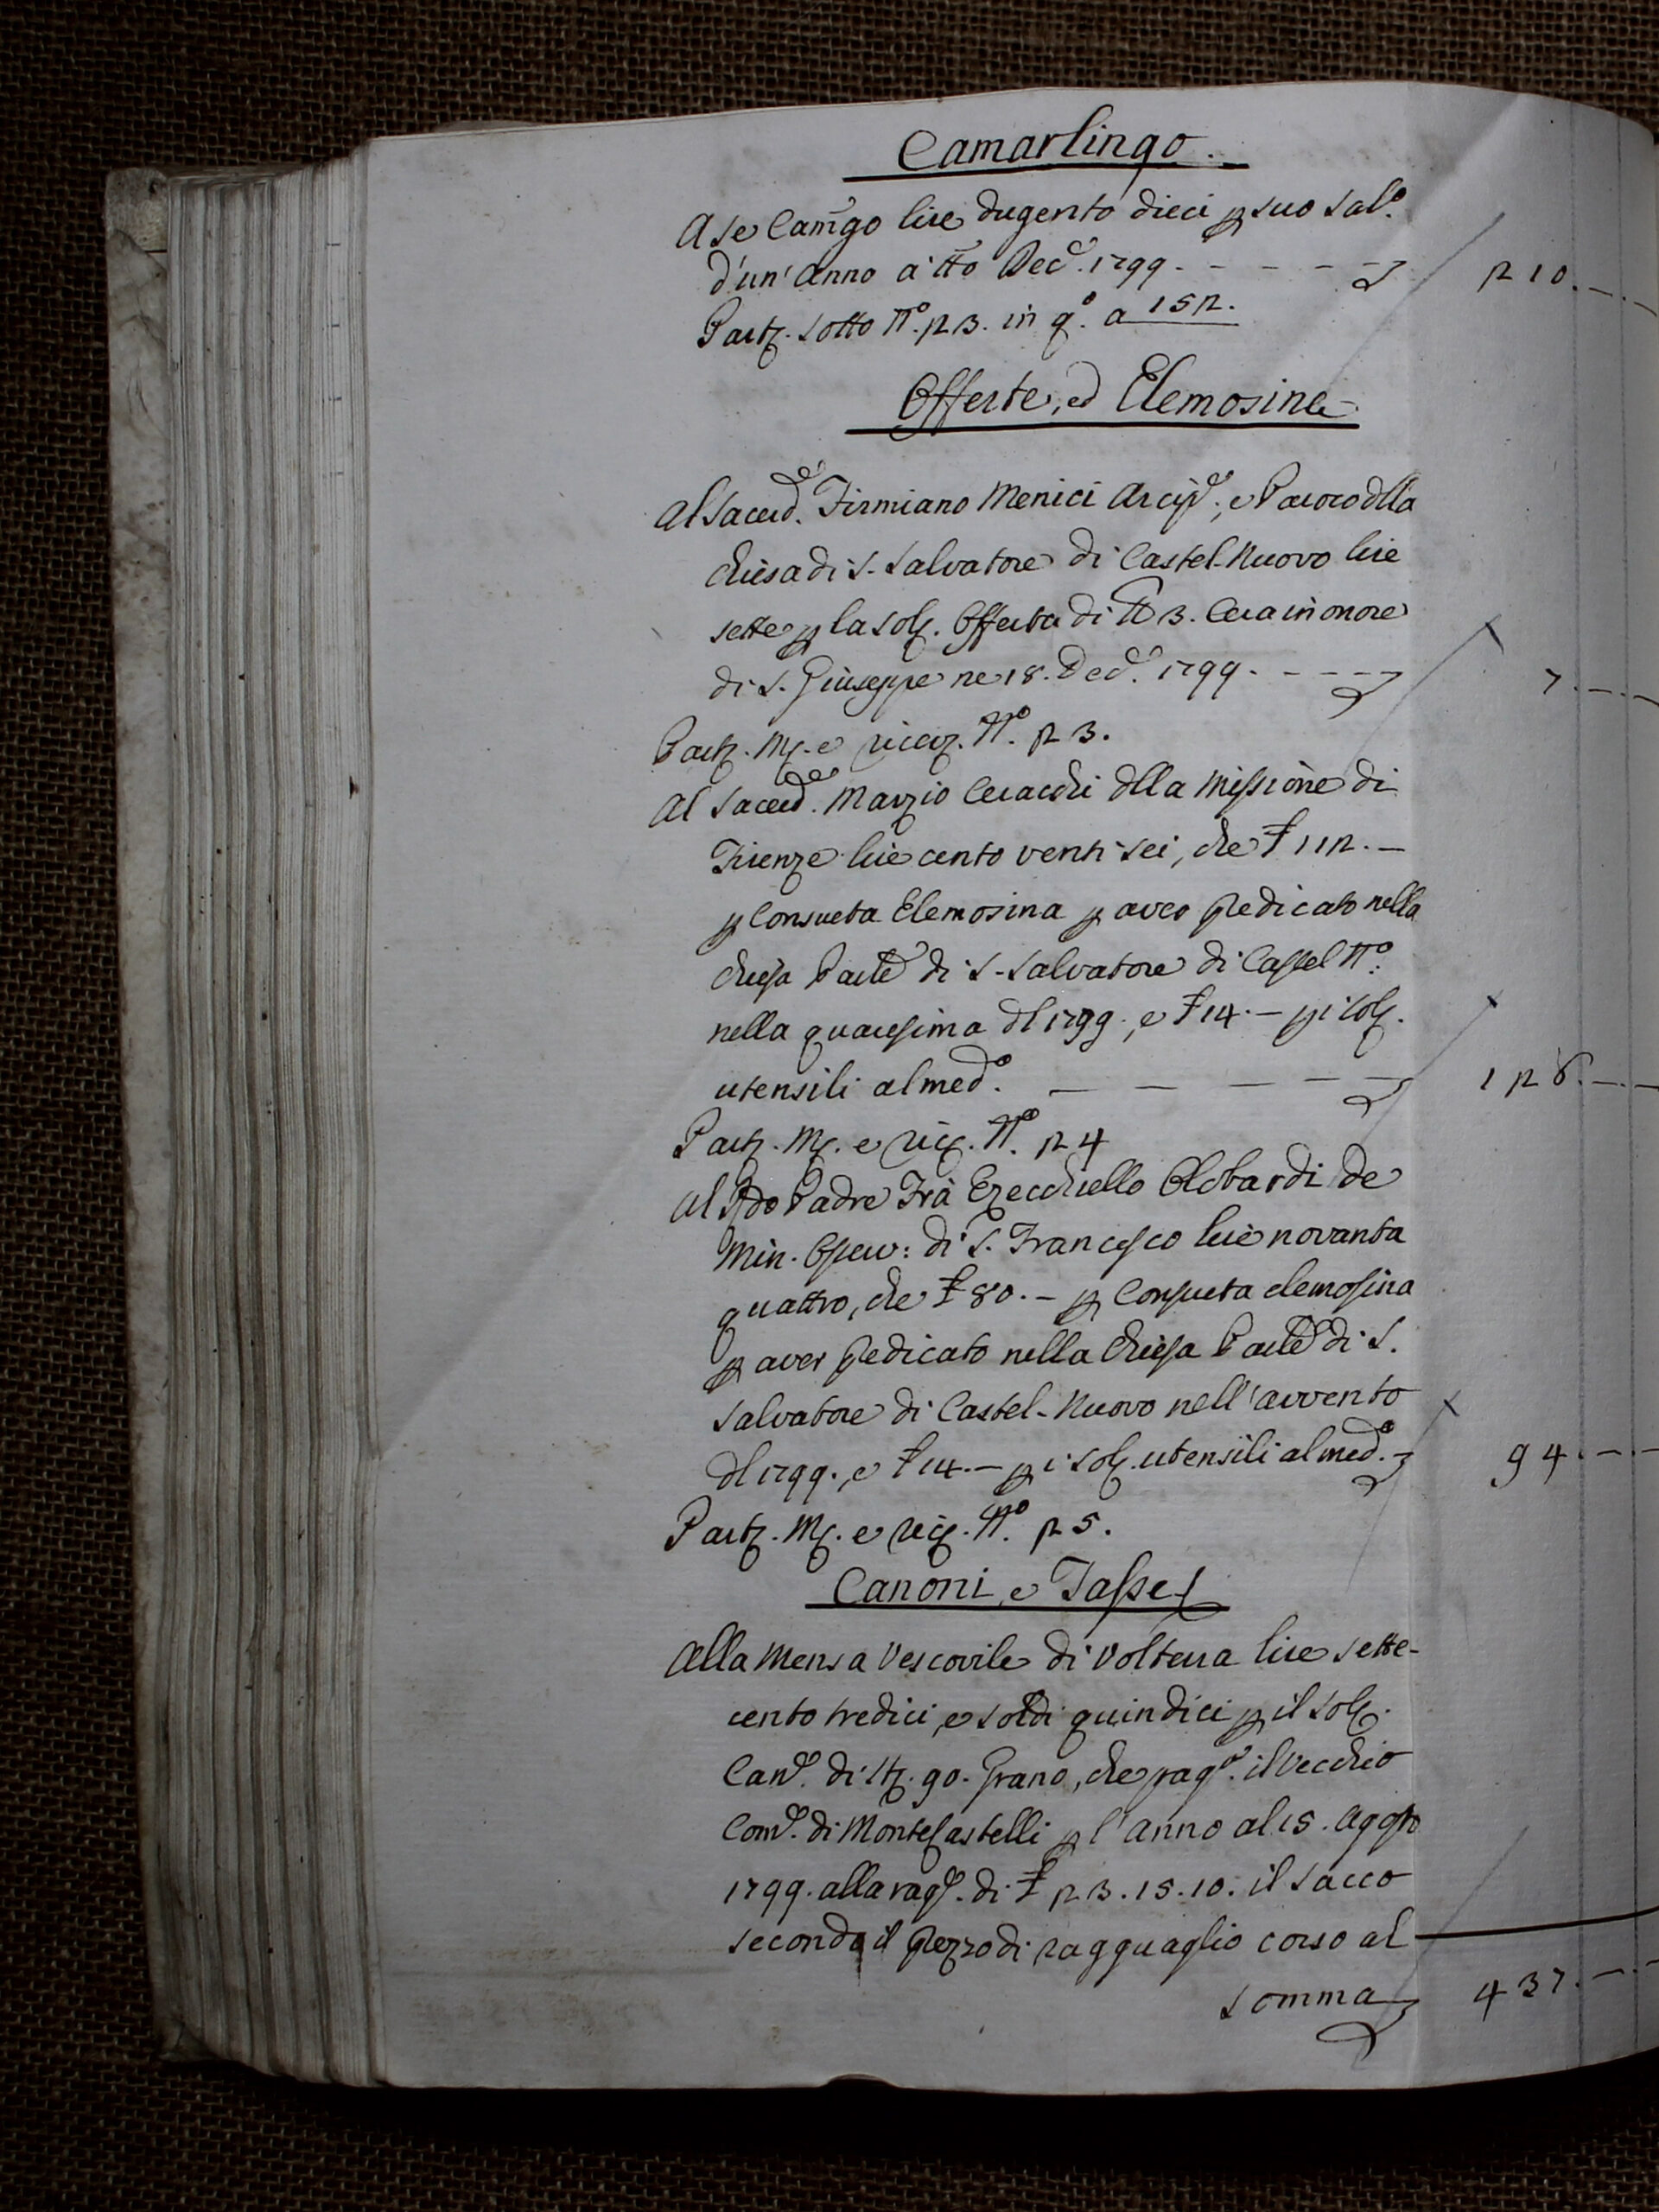 Camarlingo.
A se Cam̃go lire dugento dieci p suo sal.º
d'un'Anno a tt̃o Dec.e 1799. - - - - 210. -. -
Partz. sotto N.º 23. in q.º a 152.
Offerte, ed Elemosine
Al Sacerd.e Firmiano Menici Arcip.e, e Paroco dlla
Chiesa di S. Salvatore di Castel-Nuovo lire
sette p la sol. Offerta di ℔ 3. Cera in onore
di S. Giuseppe ne 18. Dec.e 1799. - - - - 7. -. -
Partz. M. e ricev. N.º 23.
Al Sacerd.e Marzio Ceracchi dlla Missione di
Firenze lire cento venti sei, che £ 112. —
p Consueta Elemosina p aver predicato nella
Chiesa Parle di S. Salvatore di Castel N.º
nella quaresima dl 1799., e £ 14. — p i sol.
utensili al med.º — — — - - 126. -. -
Partz. M. e ric. N.º 24
Al Rdo Padre Frà Ezecchiello Olobardi de
Min. Osserv: di S. Francesco lire novanta
quattro, che £ 80. — p Consueta elemosina
p aver predicato nella Chiesa Parle di S.
Salvatore di Castel-Nuovo nell'avvento
dl 1799., e £ 14. — p i sol. utensili al med.º - 94. -. -
Partz. M. e ric. N.º 25.
Canoni, e Tasse
Alla Mensa Vescovile di Volterra lire sette-
cento tredici, e soldi quindici p il sol.
Can.e di st. 90. Grano, che pag.a il Vecchio
Com.e di MonteCastelli p l'anno al 15. Agosto
1799. alla rag.e di £ 23. 15. 10. il sacco
secondo il prezzo di ragguaglio corso al
Somma 437. -. -